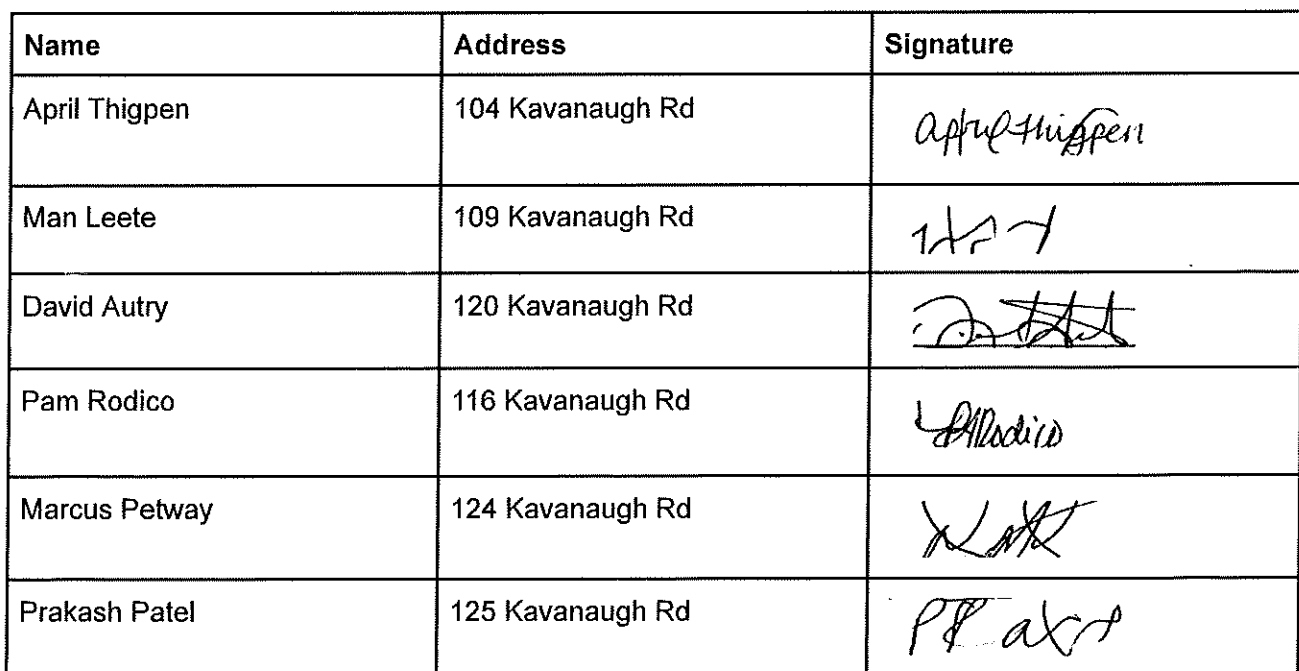 Name Address Signature
April Thigpen 104 Kavanaugh Rd April Thigpen
Man Leete 109 Kavanaugh Rd
David Autry 120 Kavanaugh Rd
Pam Rodico 116 Kavanaugh Rd PARodico
Marcus Petway 124 Kavanaugh Rd
Prakash Patel 125 Kavanaugh Rd